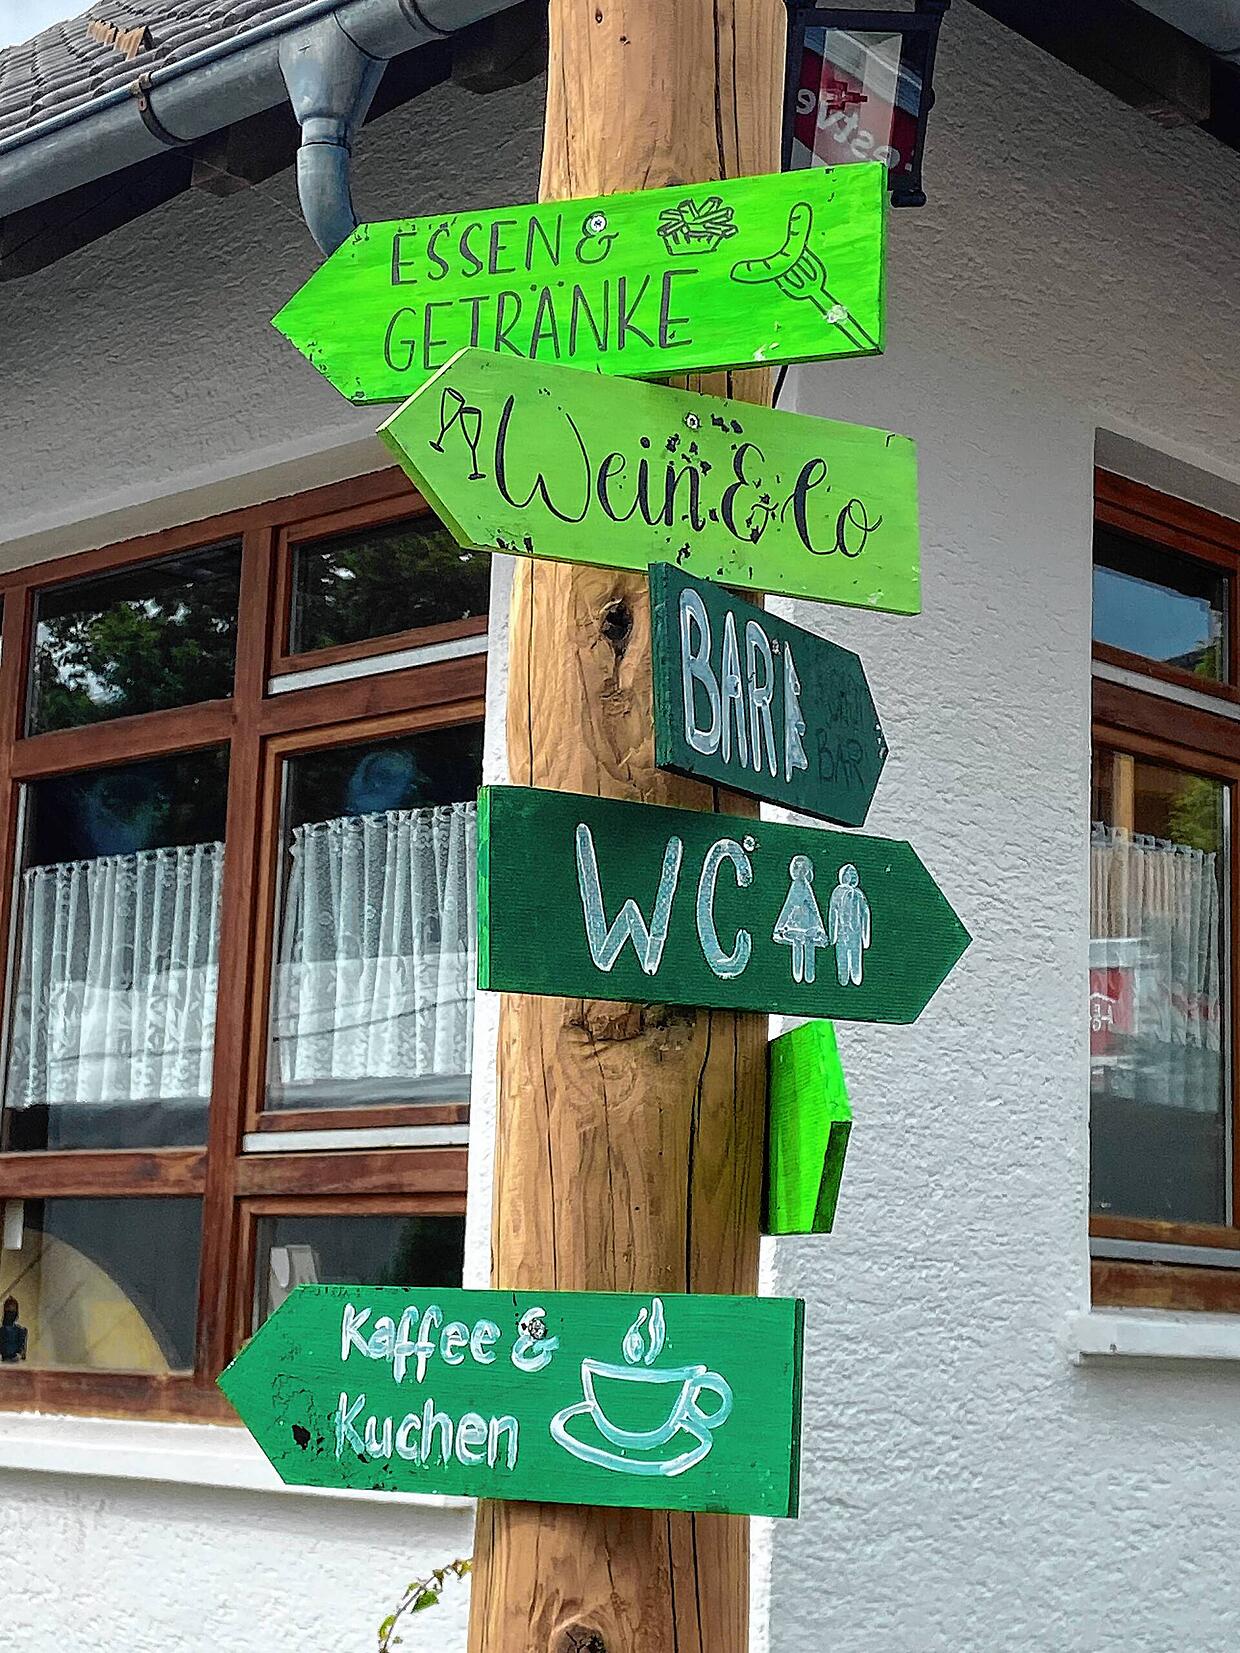 ESSEN &
GETRÄNKE
Wein & Co
BAR
BAR
WC
Kaffee &
Kuchen